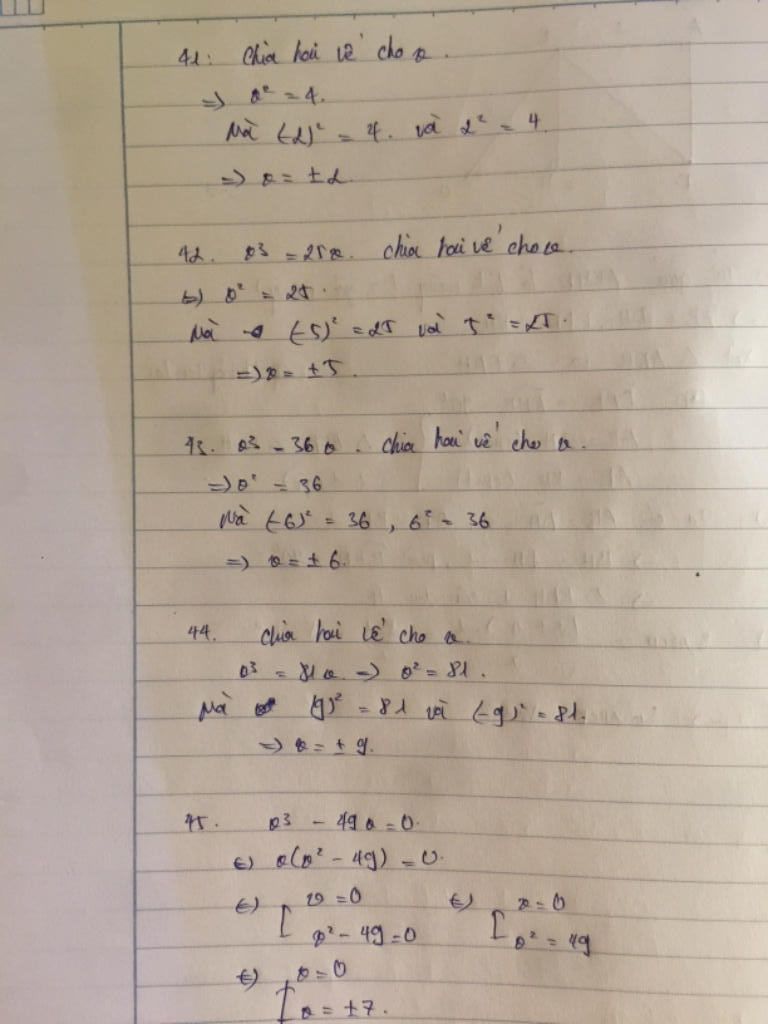 41: Chia hai vế cho a.
=> a² = 4.
Mà (-2)² = 4. và 2² = 4.
=> a = ±2.
42. a3 = 25a. chia hai vế cho a.
<=> a² = 25.
Mà (-5)² = 25 và 5² = 25.
=> a = ±5.
43. a3 = 36a. chia hai vế cho a.
=> a² = 36
Mà (-6)² = 36, 6² = 36
=> a = ±6.
44. Chia hai vế cho a.
a3 = 81a => a² = 81.
Mà (9)² = 81 và (-9)² = 81.
=> a = ±9.
45. a3 - 49a = 0.
<=> a(a² - 49) = 0.
<=> [ a = 0 <=> [ a = 0
a² - 49 = 0 a² = 49
<=> [ a = 0
a = ±7.